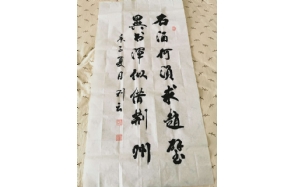 名酒何須求趙璧
異書渾似借荊州
夏月劉雲